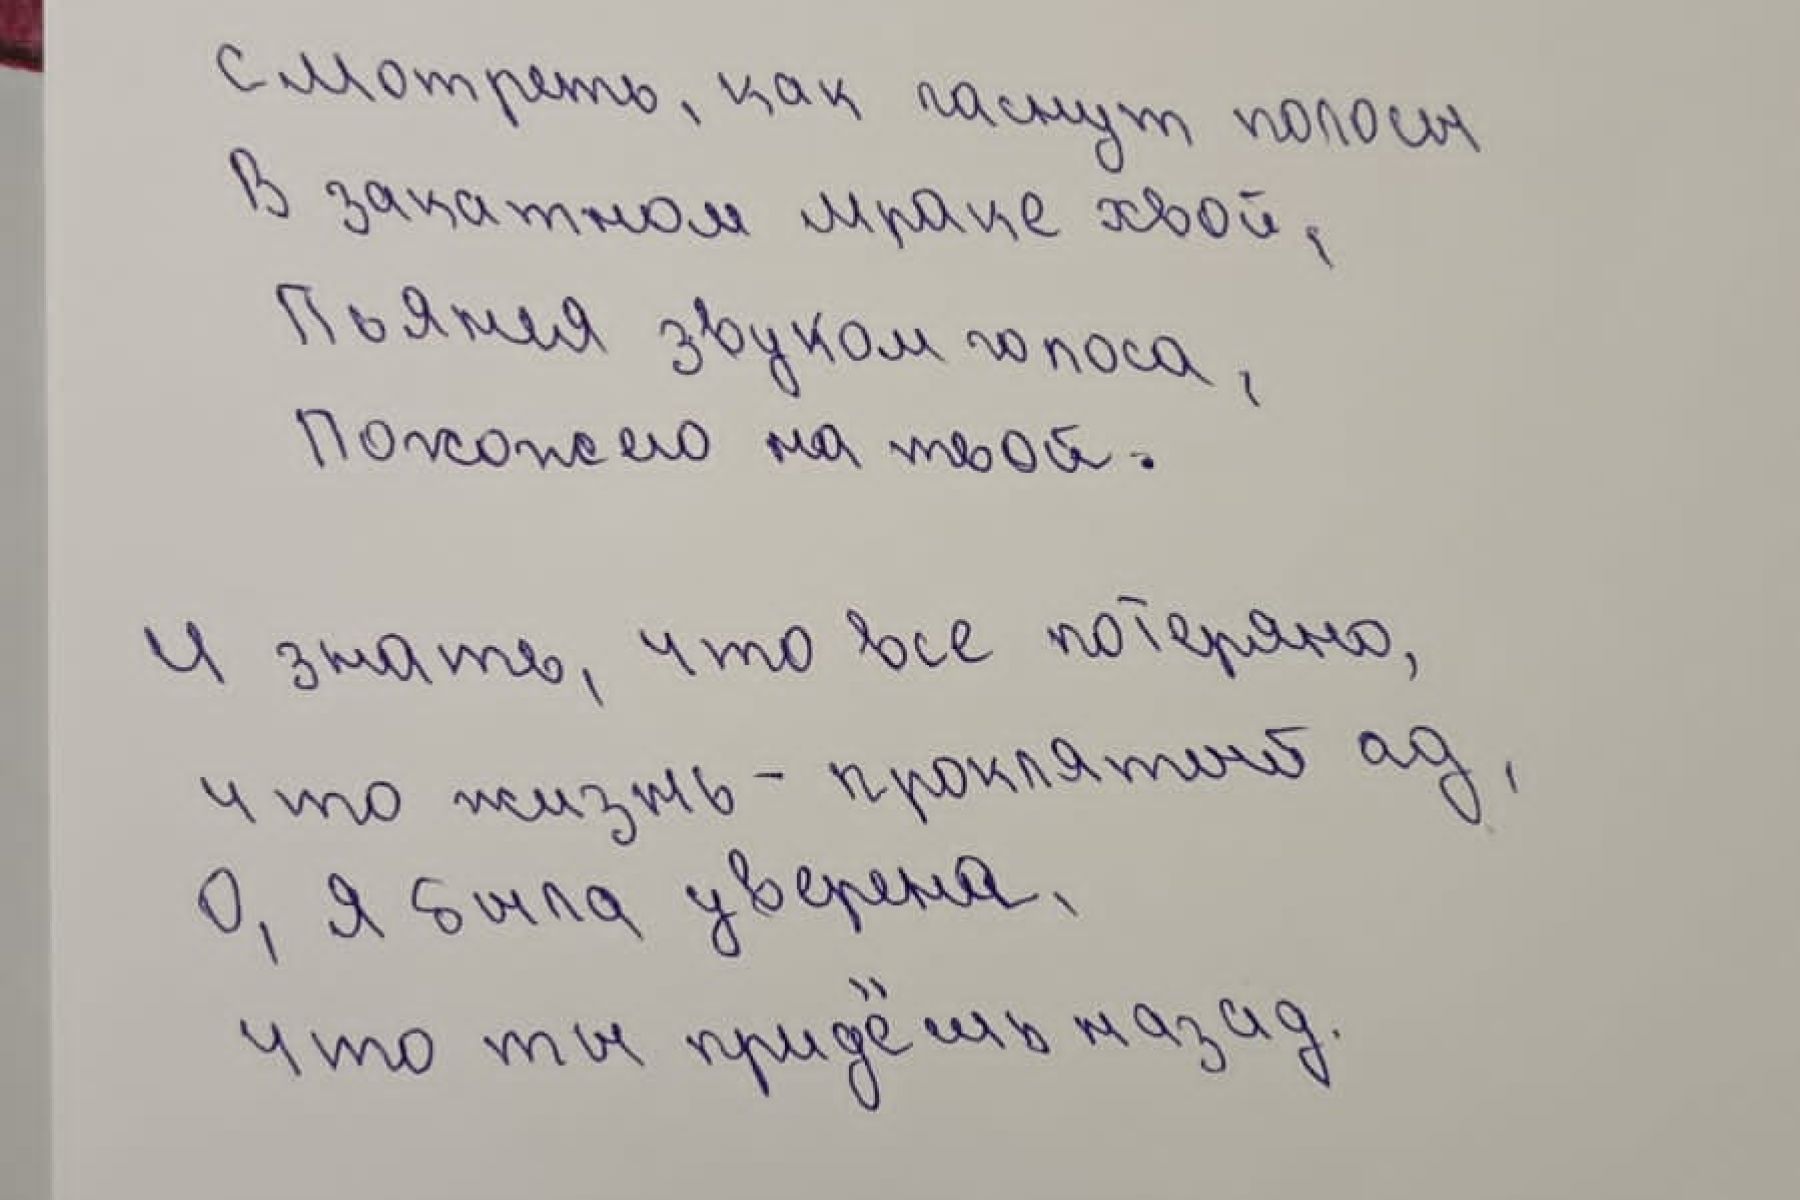 Смотреть, как гаснут полосы
В закатном мраке хвой,
Пьянея звуком голоса,
Похожего на твой.
И знать, что все потеряно,
Что жизнь - проклятый ад,
О, я была уверена,
Что ты придёшь назад.